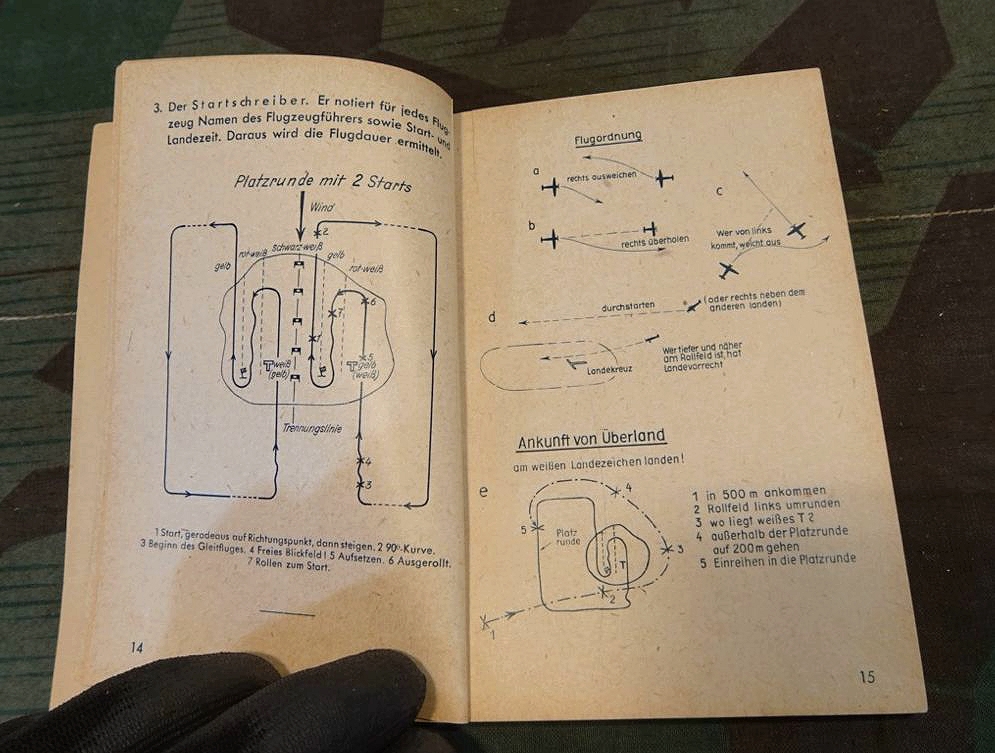 3. Der Startschreiber. Er notiert für jedes Flug-
zeug Namen des Flugzeugführers sowie Start- und
Landezeit. Daraus wird die Flugdauer ermittelt.
Platzrunde mit 2 Starts
Wind
2
schwarz-weiß
rot-weiß
gelb
gelb
rot-weiß
6
7
1
5
T weiß
(gelb)
T gelb
(weiß)
Trennungslinie
4
3
1 Start, geradeaus auf Richtungspunkt, dann steigen. 2 90°-Kurve.
3 Beginn des Gleitfluges. 4 Freies Blickfeld! 5 Aufsetzen. 6 Ausgerollt.
7 Rollen zum Start.
14
Flugordnung
a
rechts ausweichen
b
rechts überholen
c
Wer von links
kommt, weicht aus
d
durchstarten
(oder rechts neben dem
anderen landen)
Wer tiefer und näher
am Rollfeld ist, hat
Landevorrecht
Landekreuz
Ankunft von Überland
am weißen Landezeichen landen!
e
4
5
Platz
runde
T
3
2
1
1 in 500 m ankommen
2 Rollfeld links umrunden
3 wo liegt weißes T?
4 außerhalb der Platzrunde
auf 200 m gehen
5 Einreihen in die Platzrunde
15